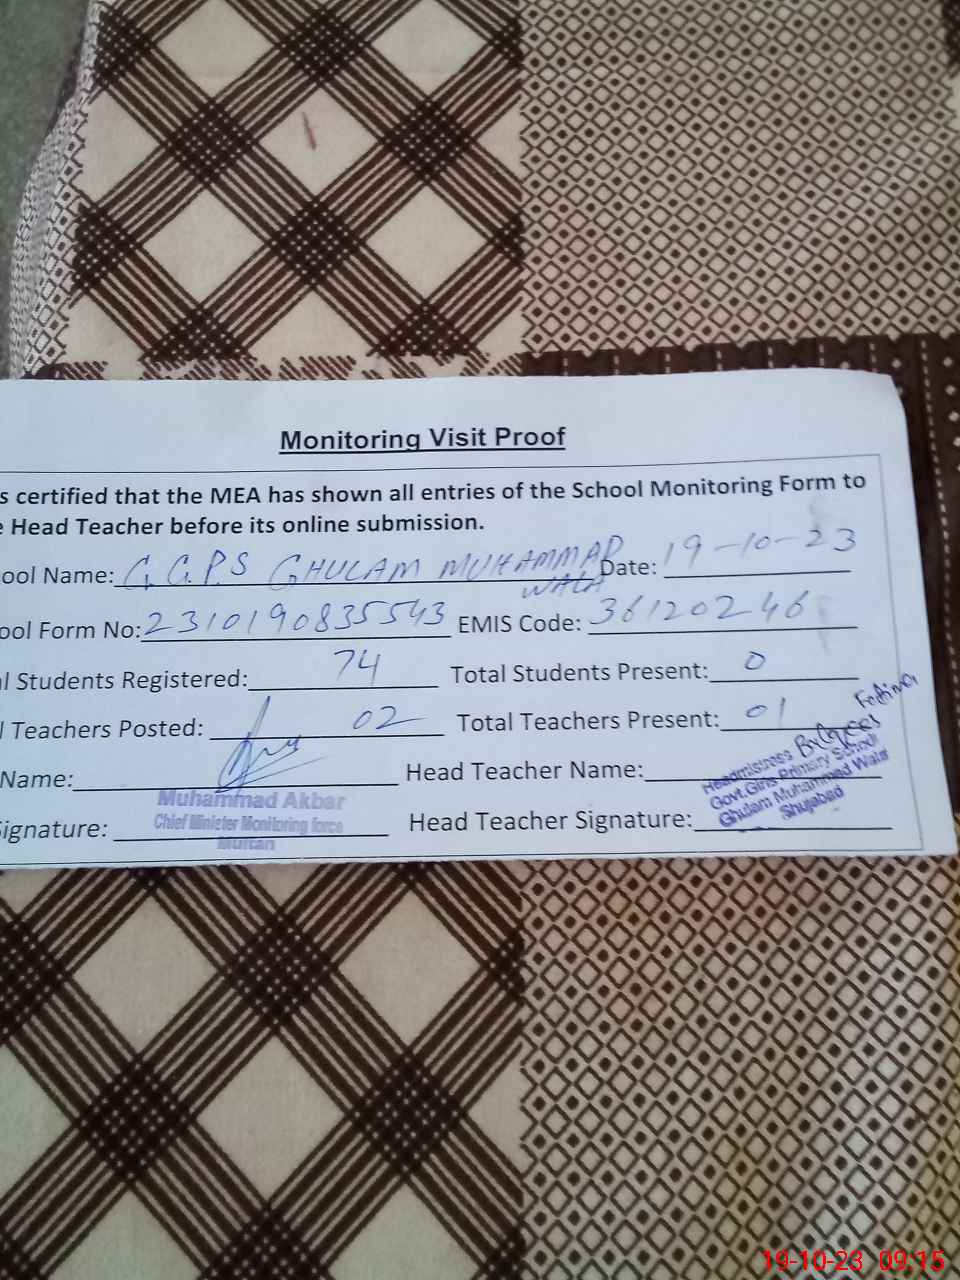 Monitoring Visit Proof
s certified that the MEA has shown all entries of the School Monitoring Form to
e Head Teacher before its online submission.
ool Name: G.G.P.S GHULAM MUHAMMAD WALA Date: 19-10-23
ool Form No: 2310190835543 EMIS Code: 36120246
l Students Registered: 74 Total Students Present: 0
l Teachers Posted: 02 Total Teachers Present: 01
Name: Head Teacher Name: Fatima
ignature: Head Teacher Signature:
Muhammad Akbar
Chief Minister Monitoring force
Multan
Headmistress
Govt. Girls Primary School
Ghulam Muhammad Wala
Shujabad
19-10-23 09:15